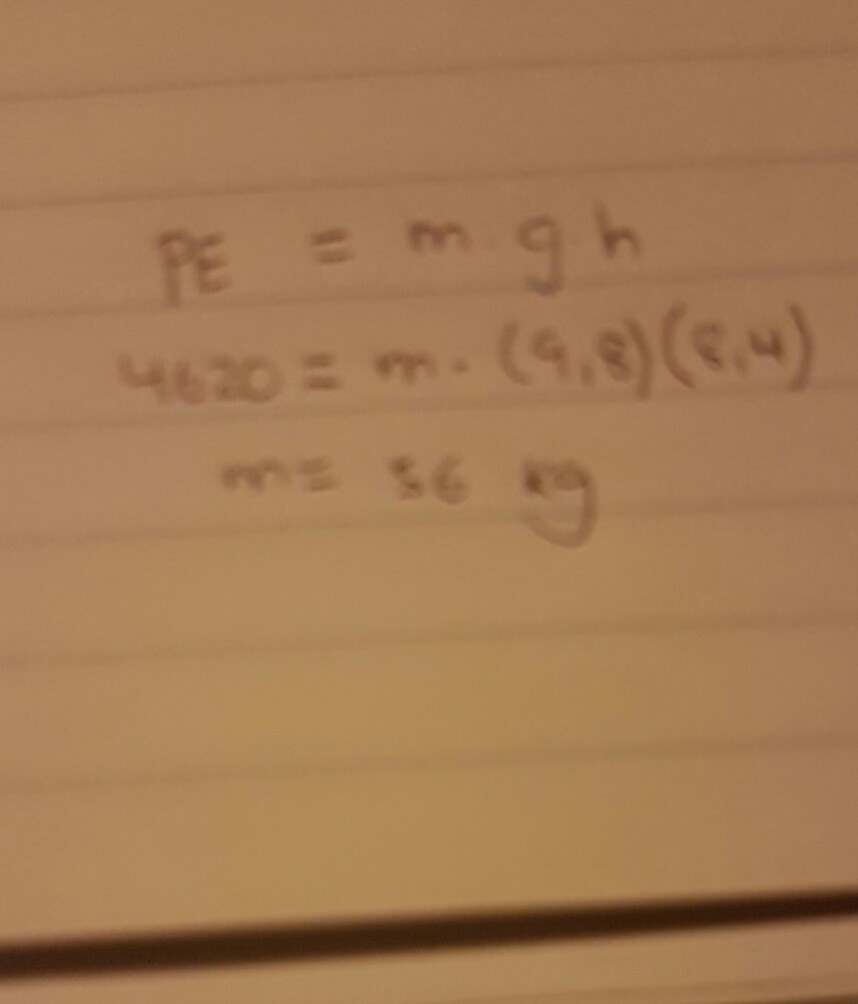 PE = m · g h
4620 = m · (9,8)(8,4)
m = 56 kg